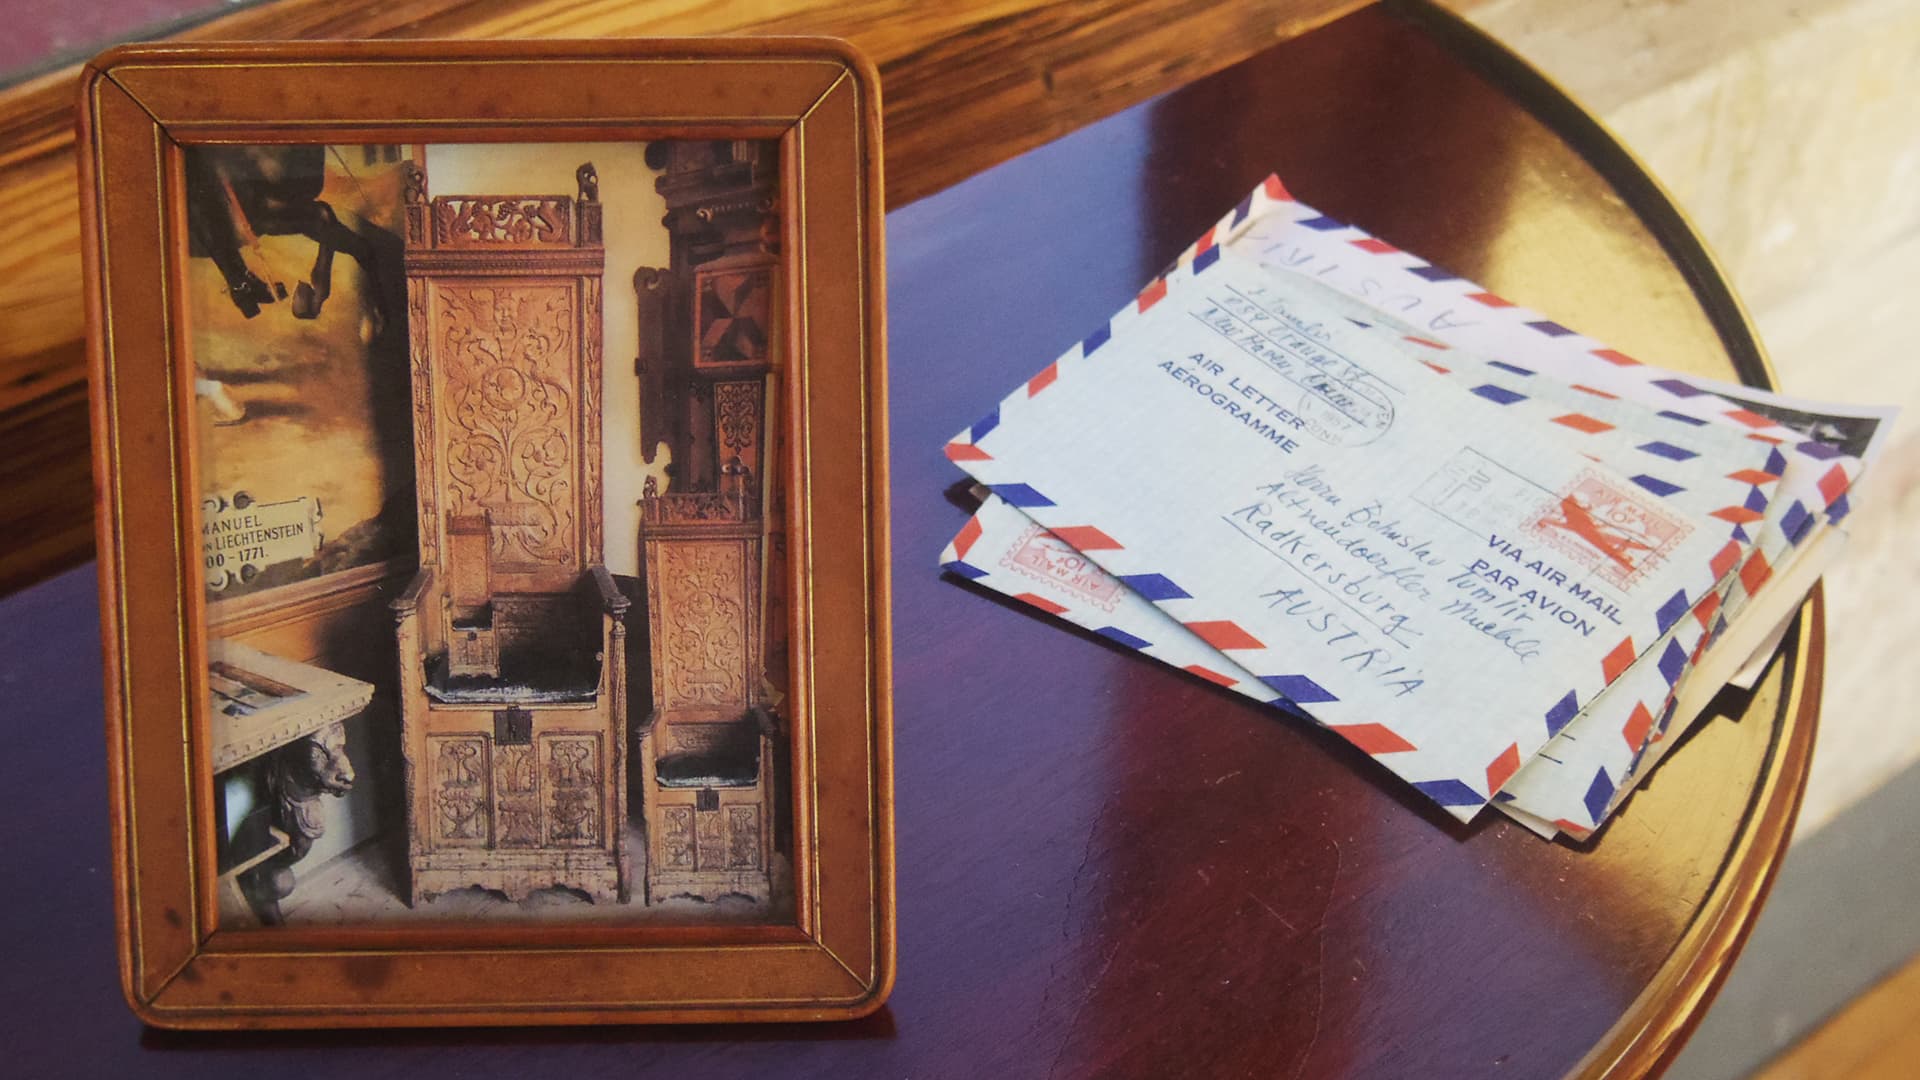 MANUEL
N LIECHTENSTEIN
00-1771.
AUSTRIA
New Haven,
AIR LETTER
AÉROGRAMME
1957
CONN
AIR MAIL
10¢
Herrn Bohuslav Tumlir
Altneudoerfler Muehle
Radkersburg
AUSTRIA
VIA AIR MAIL
PAR AVION
AIR MAIL
10¢